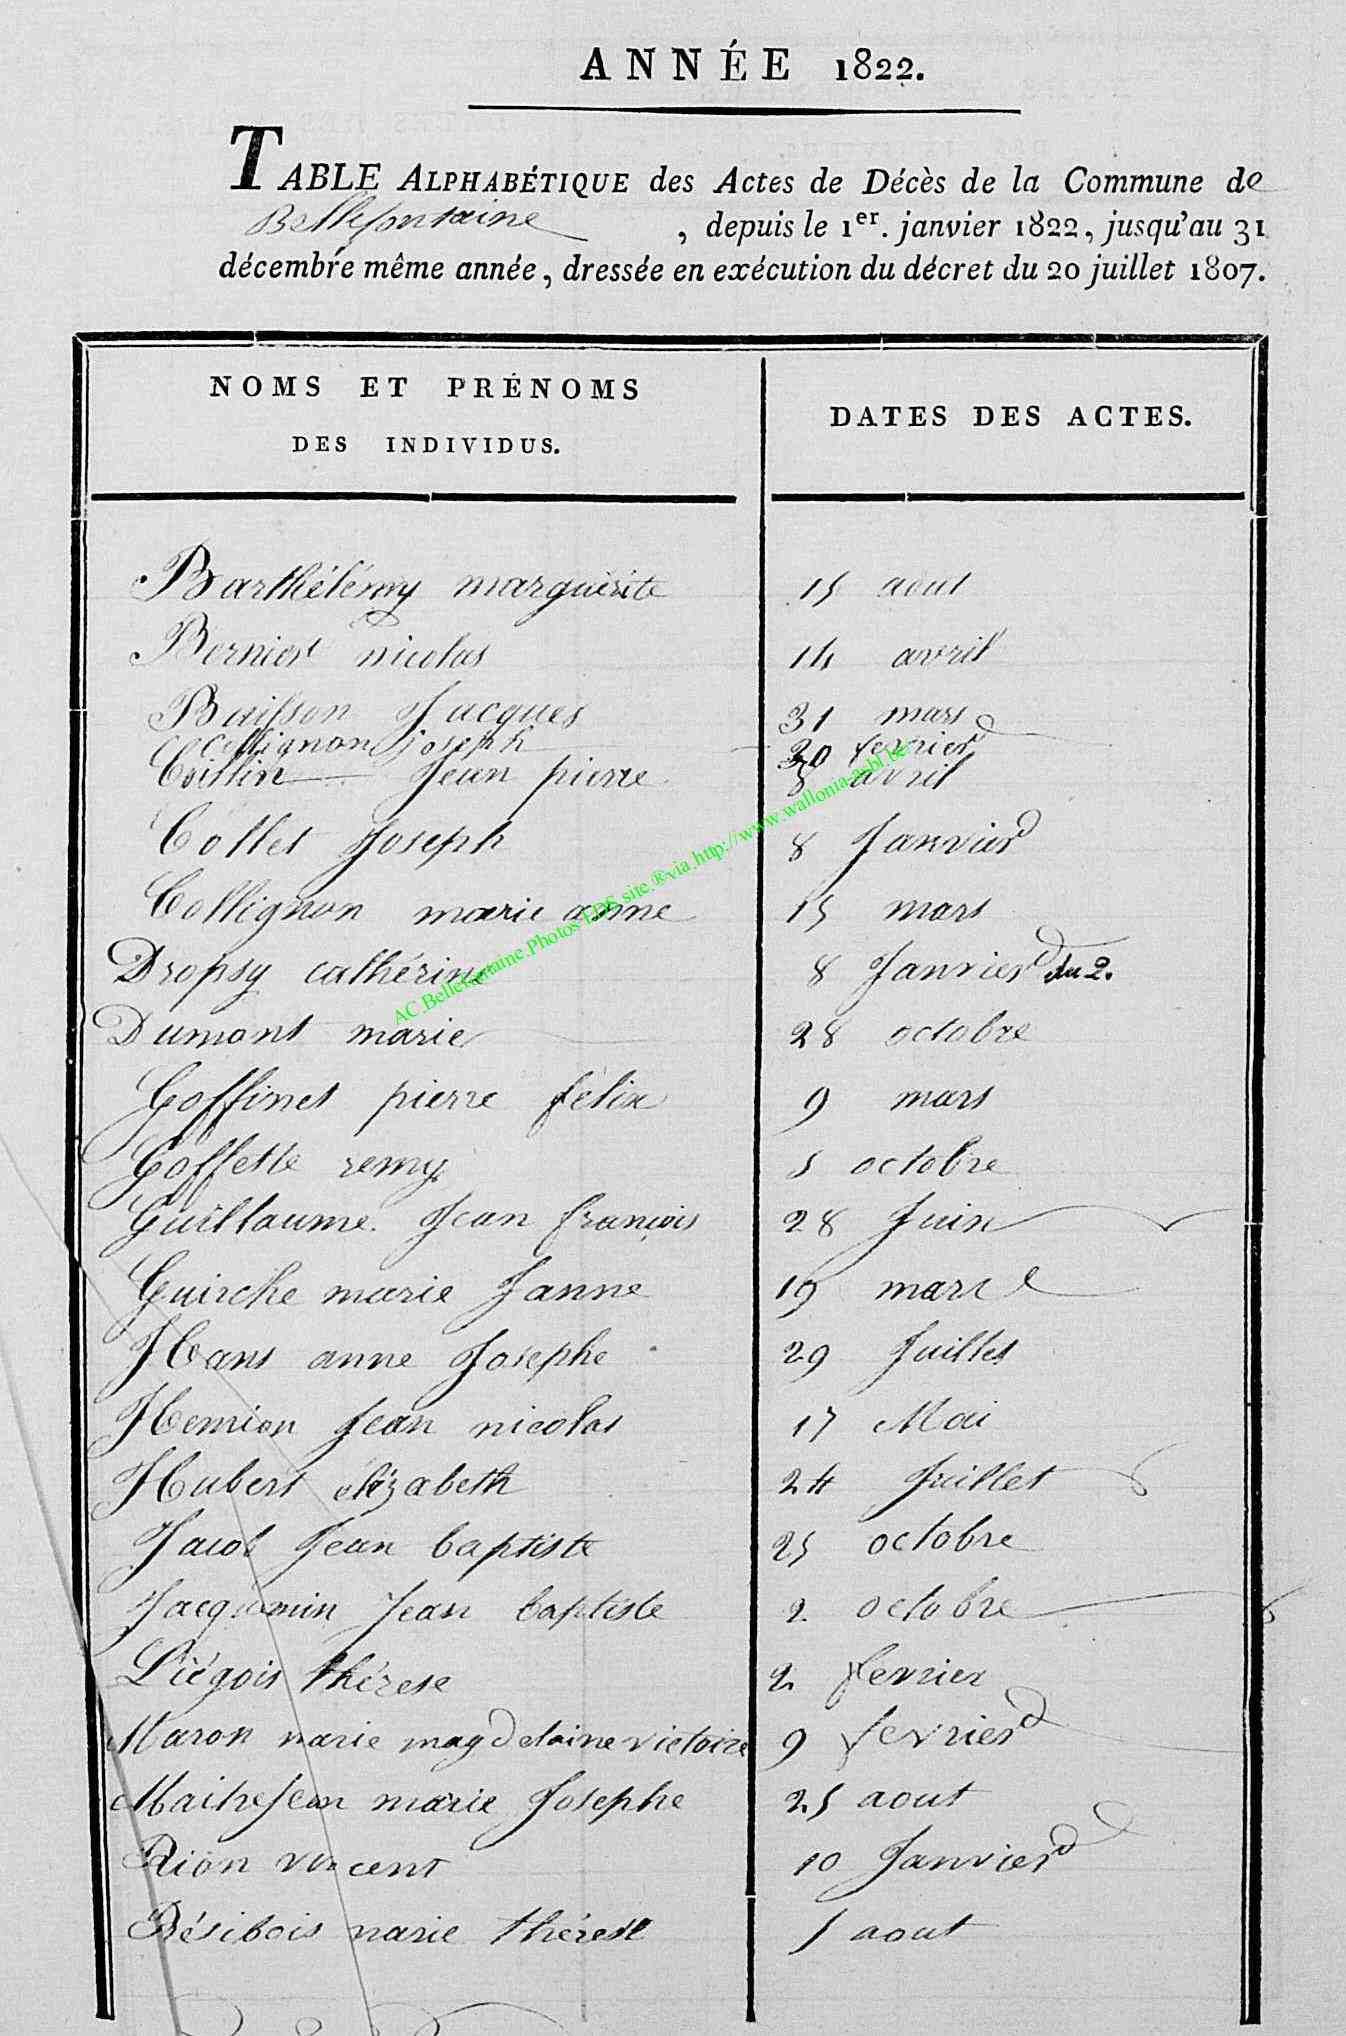 ANNÉE 1822.
TABLE ALPHABÉTIQUE des Actes de Décès de la Commune de
Bellefontaine , depuis le 1er. janvier 1822, jusqu'au 31
décembre même année, dressée en exécution du décret du 20 juillet 1807.
NOMS ET PRÉNOMS
DES INDIVIDUS.
DATES DES ACTES.
Barthélémy marguerite 15 aout
Bernier nicolas 14 avril
Buisson Jacques 31 mars
Collignon joseph 20 fevrier
Jean pierre 8 avril
Collet Joseph 8 Janvier
Collignon marie anne 15 mars
Dropsy cathérine 8 Janvier du 2.
Dumont marie 28 octobre
Goffinet pierre félix 9 mars
Goffette remy 5 octobre
Guillaume Jean françois 28 Juin
Guirche marie Janne 19 mars
Hans anne Josephe 29 Juillet
Hemion Jean nicolas 17 Mai
Hubert élizabeth 24 Juillet
Jacob Jean baptiste 25 octobre
Jacquemin Jean baptiste 2 octobre
Liégois thérese 2 fevrier
Maron marie magdelaine victoire 9 fevrier
Maitrejean marie Josephe 25 aout
Rion vincent 10 Janvier
Résibois marie thérese 5 aout
AC.Bellefontaine.Photos EDS site.®via.http://www.wallonia-asbl.be